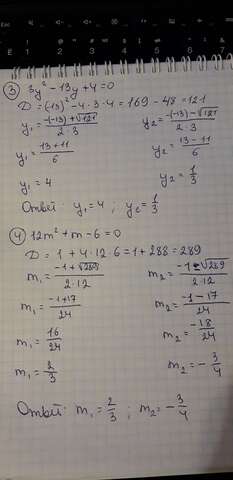 ③ 3y² - 13y + 4 = 0
D = (-13)² - 4·3·4 = 169 - 48 = 121
y₁ = (-(-13) + √121) / (2·3) y₂ = (-(-13) - √121) / (2·3)
y₁ = (13 + 11) / 6 y₂ = (13 - 11) / 6
y₁ = 4 y₂ = 1/3
Ответ: y₁ = 4 ; y₂ = 1/3
④ 12m² + m - 6 = 0
D = 1 + 4·12·6 = 1 + 288 = 289
m₁ = (-1 + √289) / (2·12) m₂ = (-1 - √289) / (2·12)
m₁ = (-1 + 17) / 24 m₂ = (-1 - 17) / 24
m₁ = 16/24 m₂ = -18/24
m₁ = 2/3 m₂ = -3/4
Ответ: m₁ = 2/3 ; m₂ = -3/4